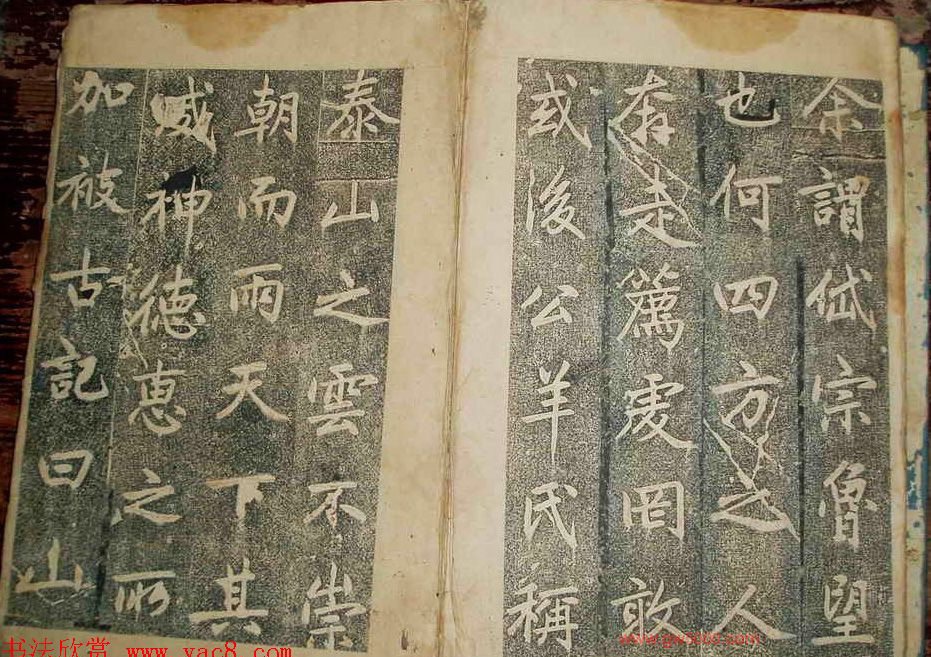 余謂岱宗魯望
也何四方之人
奔走薦虔罔敢
或後公羊氏稱
泰山之雲不崇
朝而雨天下其
威神德惠之所
加被古記曰山
书法欣赏 www.yac8.com